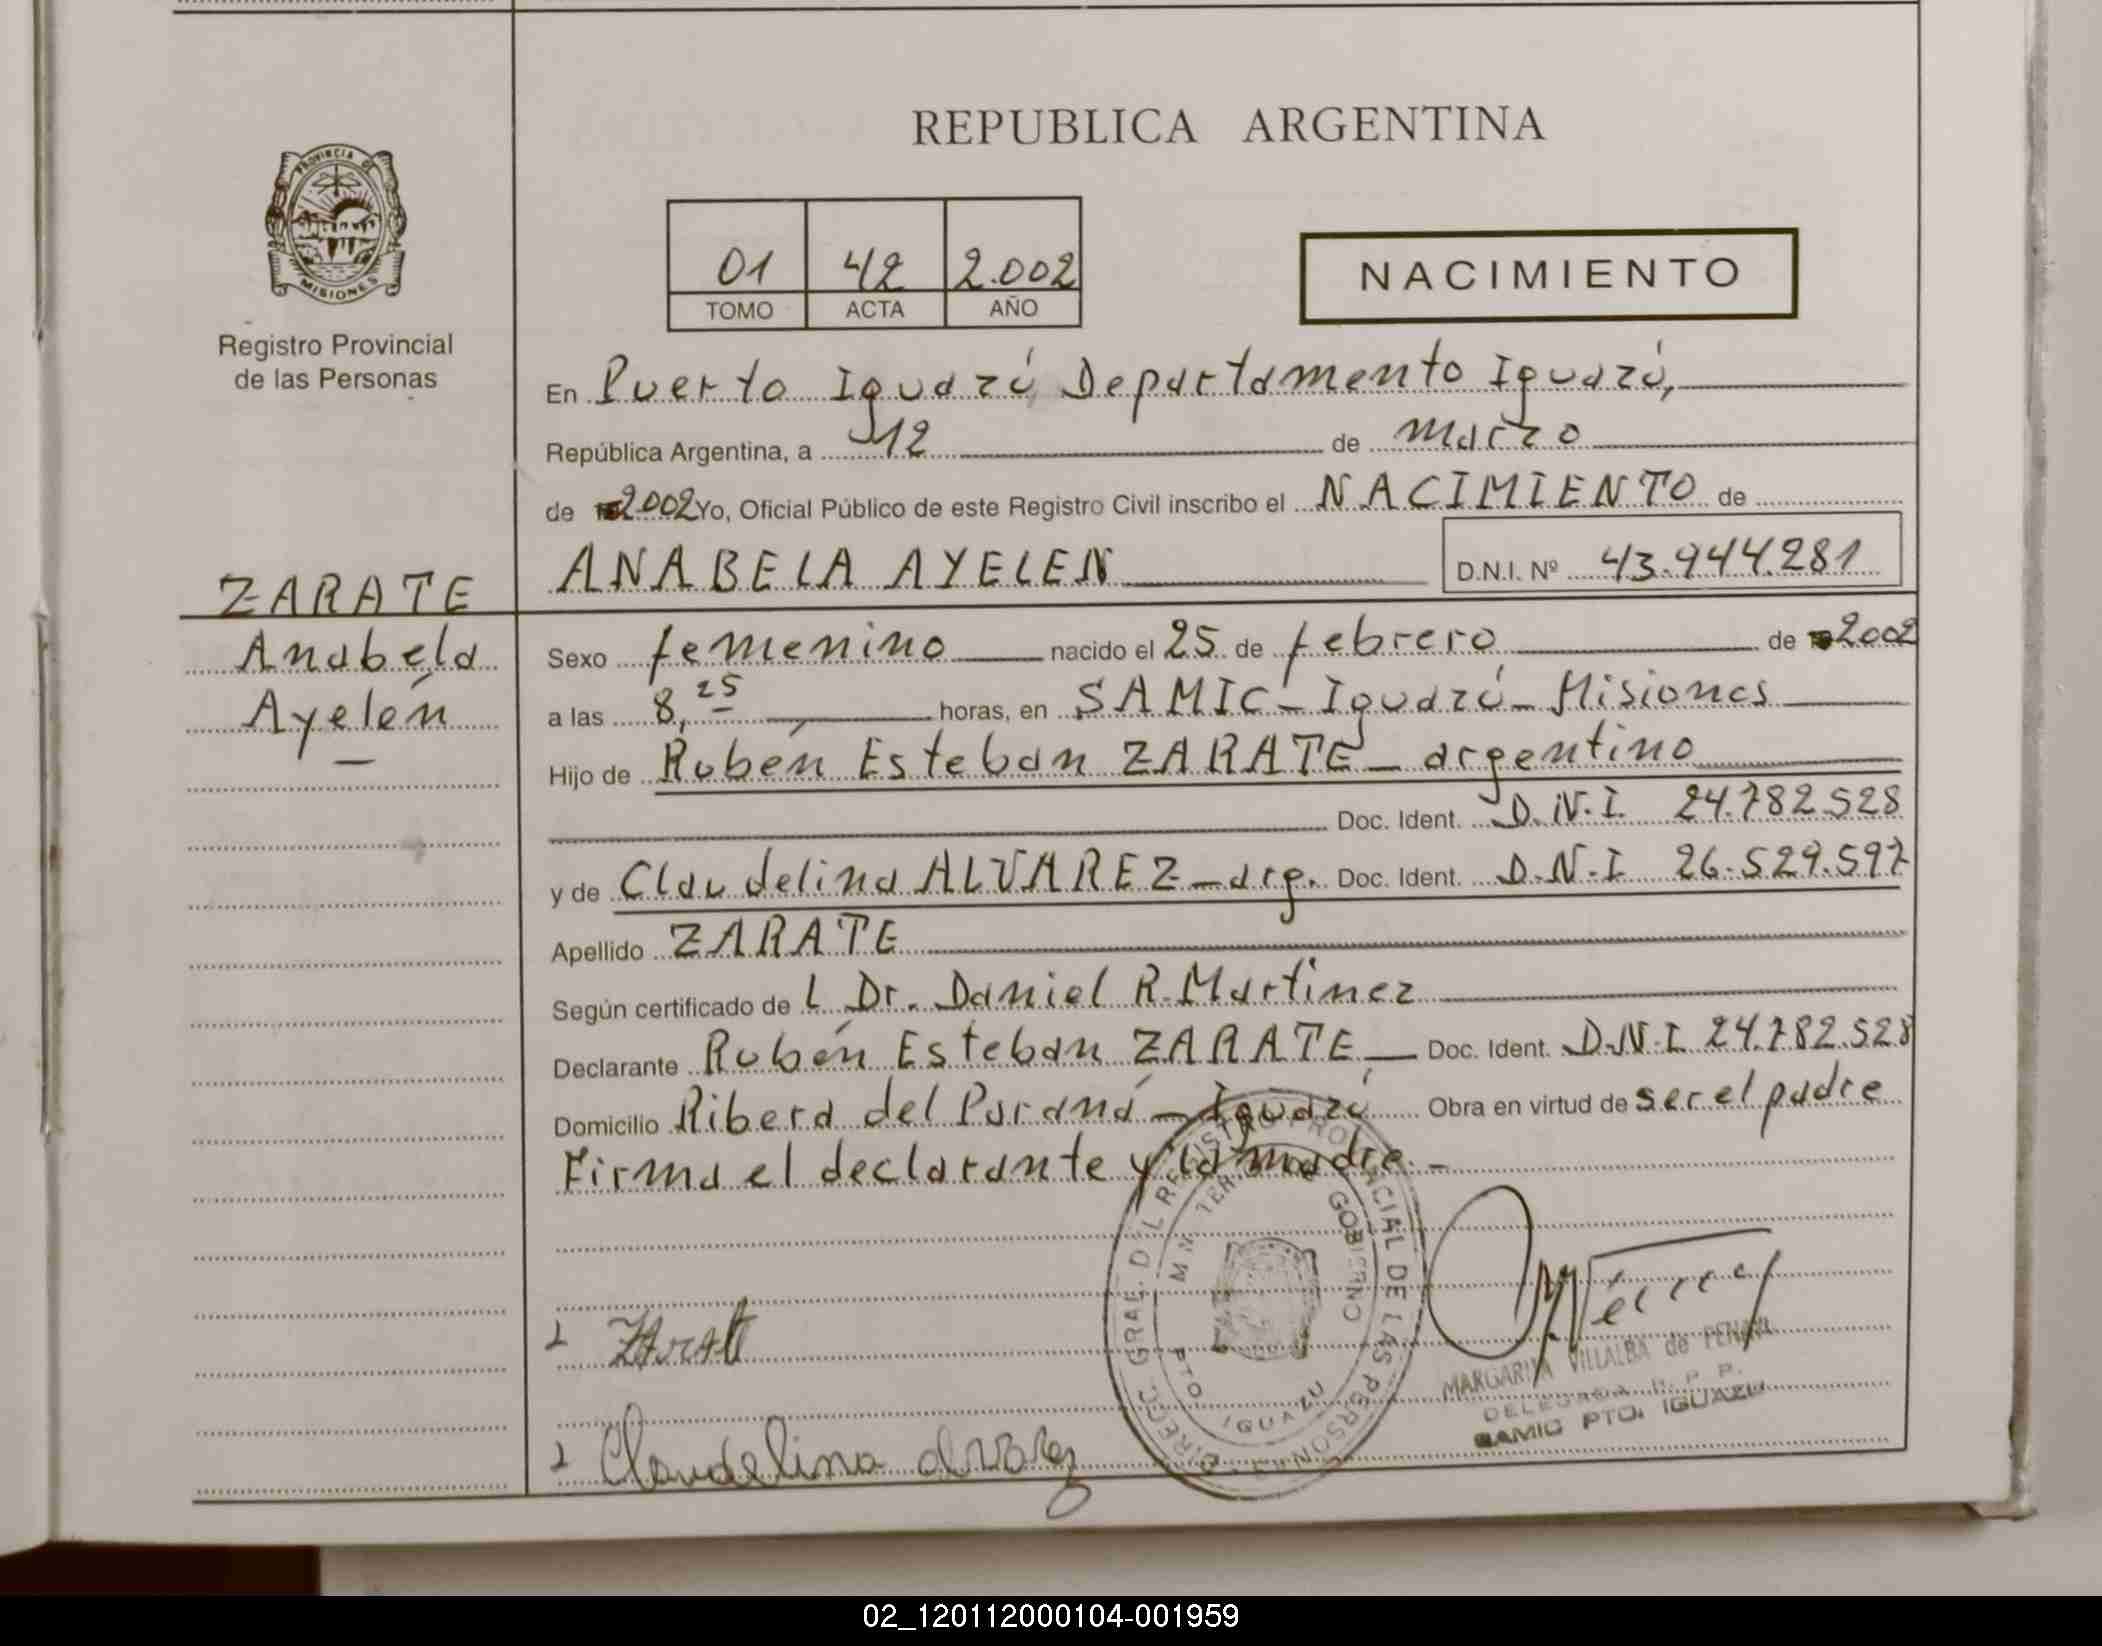 REPUBLICA ARGENTINA
PROVINCIA DE
MISIONES
Registro Provincial
de las Personas
01 42 2.002
TOMO ACTA AÑO
NACIMIENTO
En Puerto Iguazú, Departamento Iguazú,
República Argentina, a 12 de marzo
de 2002 Yo, Oficial Público de este Registro Civil inscribo el NACIMIENTO de
ANABELA AYELEN D.N.I. Nº 43.944.281
ZARATE
Anabela
Ayelén
Sexo femenino nacido el 25 de febrero de 2002
a las 8,25 horas, en SAMIC - Iguazú - Misiones
Hijo de Rubén Esteban ZARATE - argentino
Doc. Ident. D.N.I. 24.782.528
y de Claudelina ALVAREZ - arg. Doc. Ident. D.N.I 26.529.597
Apellido ZARATE
Según certificado de L Dr. Daniel R. Martinez
Declarante Rubén Esteban ZARATE - Doc. Ident. D.N.I. 24.782.528
Domicilio Ribera del Paraná - Iguazú Obra en virtud de ser el padre
Firma el declarante y la madre. -
DIRECC. GRAL. DEL REGISTRO PROVINCIAL DE LAS PERSONAS
GOBIERNO
PTO IGUAZU
Zarate
MARGARITA VILLALBA de
DELEGADA R. P. P.
SAMIC PTO. IGUAZU
Claudelina alvarez
02_120112000104-001959